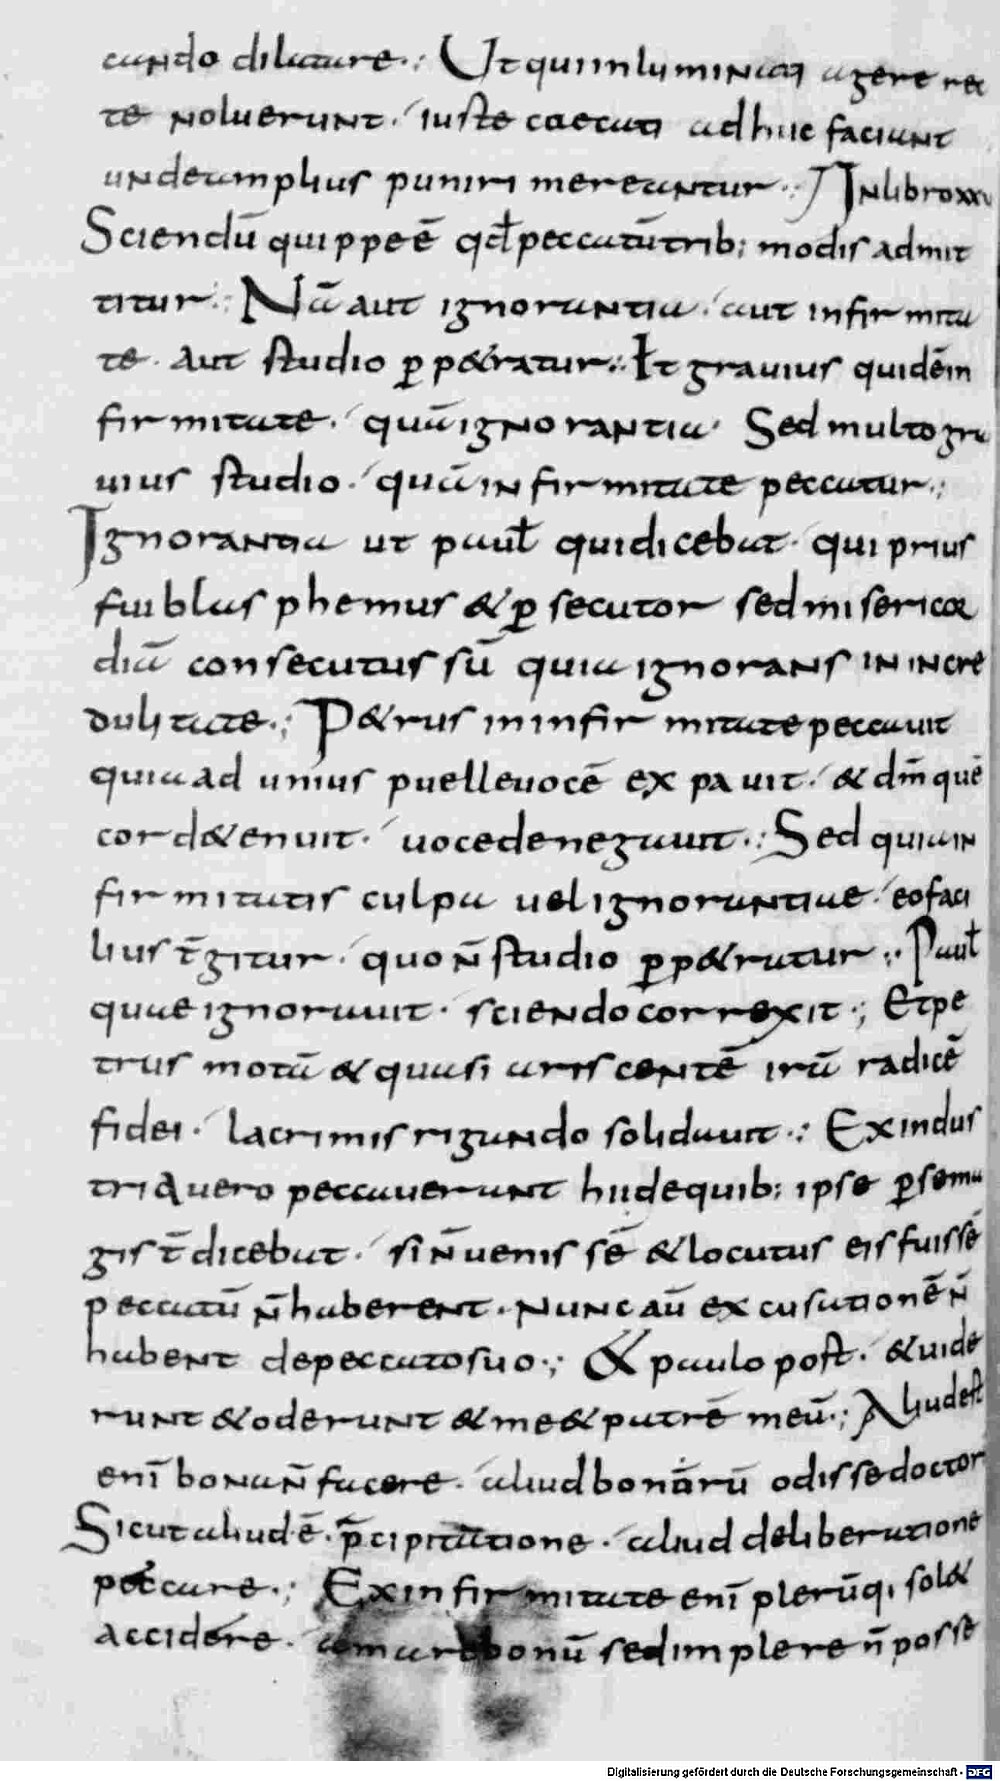 cando dilatare·: Ut qui in luminati agere rec
te noluerunt· iuste caecati adhuc faciunt
unde amplius puniri mereantur·: In libro xxv
Sciendū quippe ē qđ peccatū trib; modis admit
titur·: Nā aut ignorantia· aut infirmita
te· aut studio ꝑp&ratur·: Et grauius quidē in
firmitate· quā ignorantia· Sed multo gra
uius studio· quā infirmitate peccatur·:
Ignorantia ut paul̄ qui dicebat· qui prius
fui blasphemus & ꝑsecutor sed misericor
diā consecutus sū quia ignorans in incre
dulitate·; P&rus in infirmitate peccauit
quia ad unius puelle uocē expauit· & dm̄ quē
corde tenuit· uoce denegauit·: Sed quia in
firmitatis culpa uel ignorantiae· eo faci
lius t̄gitur· quo n̄ studio ꝑp&ratur·: Paul̄
quae ignorauit· sciendo correxit·; Et pe
trus motā & quasi ariscentē iā radicē
fidei· lacrimis rigando solidauit·: Ex indus
tria uero peccauerunt hii de quib; ipse ꝑ sema
gist̄ dicebat· si n̄ uenissē & locutus eis fuissē
peccatū n̄ haberent· nunc aū excusationē n̄
habent de peccato suo·; & paulo post· & uide
runt & oderunt & me & patrē meū·; Aliud est
enī bona n̄ facere· aliud bonorū odisse doctor
Sicut aliud ē p̄cipitatione· aliud deliberatione
peccare·; Ex infirmitate enī plerūq; sol&
accidere· amare bonū sed implere n̄ posse
Digitalisierung gefördert durch die Deutsche Forschungsgemeinschaft - DFG